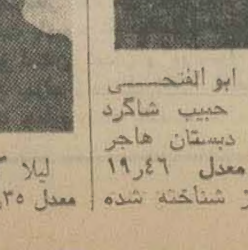 ابو الفتحـــی
حبیب شاگرد
دبستان هاجر
معدل ۱۹ر۴۶
شناخته شده
لیلا
معدل ۳۵ر